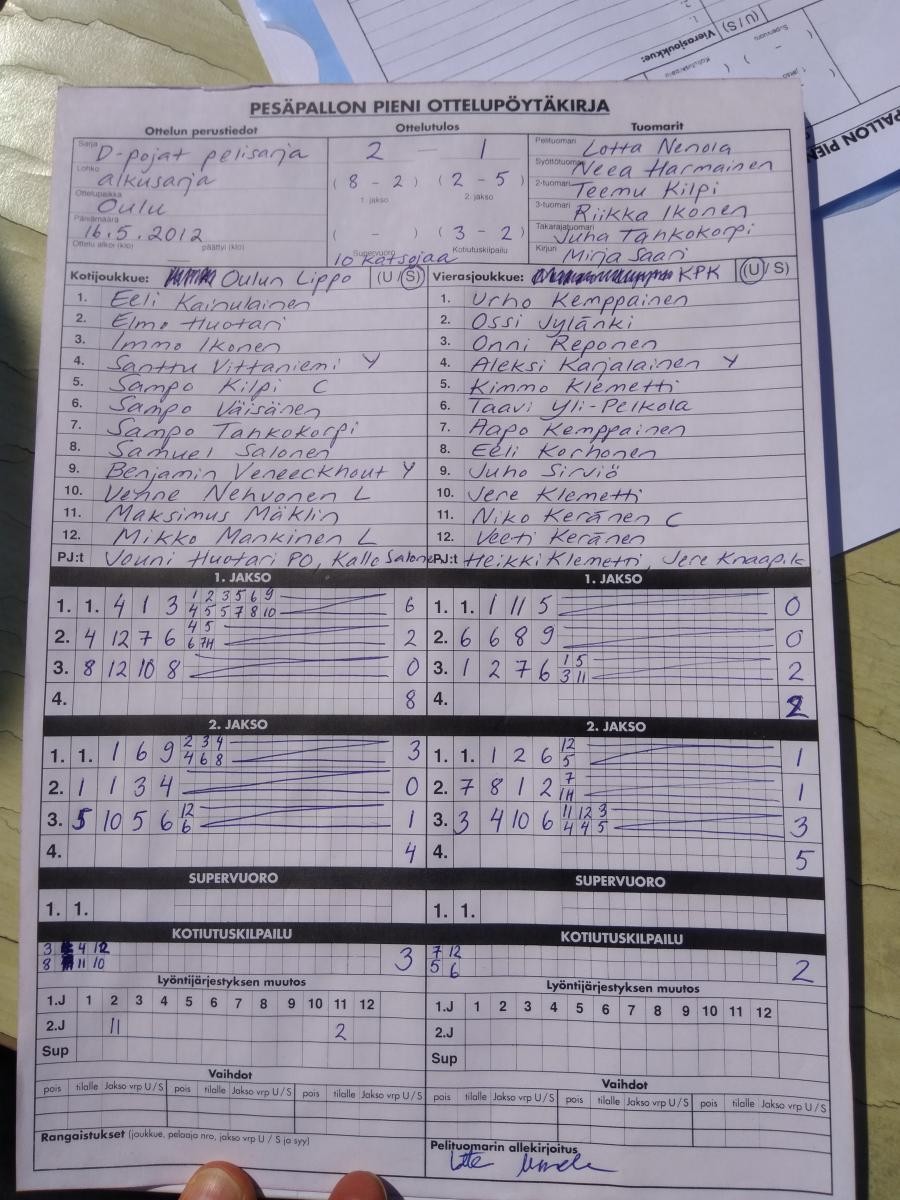 PESÄPALLON PIENI OTTELUPÖYTÄKIRJA
Ottelun perustiedot Ottelutulos Tuomarit
Sarja D-pojat pelisarja
Lohko alkusarja
Ottelupaikka Oulu
Päivämäärä 16.5.2012
Ottelu alkoi (klo) päättyi (klo)
2 — 1
( 8 - 2 ) ( 2 - 5 )
1. jakso 2. jakso
( - ) ( 3 - 2 )
Supervuoro Kotiutuskilpailu
10 katsojaa
Pelituomari Lotta Nenola
Syöttötuomari Neea Harmainen
2-tuomari Teemu Kilpi
3-tuomari Riikka Ikonen
Takarajatuomari Juha Tahkokorpi
Kirjuri Mirja Saari
Kotijoukkue: Oulun Lippo (U/S)
1. Eeli Kainulainen
2. Elmo Huotari
3. Immo Ikonen
4. Santtu Vittaniemi Y
5. Sampo Kilpi C
6. Sampo Väisänen
7. Sampo Tahkokorpi
8. Samuel Salonen
9. Benjamin Veneeckhout Y
10. Nehvonen L
11. Maksimus Mäklin
12. Mikko Mankinen L
PJ:t Jouni Huotari PO, Kalle Salonen
Vierasjoukkue: KPK (U/S)
1. Urho Kemppainen
2. Ossi Jylänki
3. Onni Reponen
4. Aleksi Karjalainen Y
5. Kimmo Klemetti
6. Taavi Yli-Pelkola
7. Aapo Kemppainen
8. Eeli Korhonen
9. Juho Sirviö
10. Jere Klemetti
11. Niko Keränen C
12. Veeti Keränen
PJ:t Heikki Klemetti, Jere Knaapik
1. JAKSO
1. 1. 4 1 3 1 2 3 5 6 9 6
4 5 5 7 8 10
2. 4 12 7 6 4 5 2
6 7H
3. 8 12 10 8 0
4. 8
1. JAKSO
1. 1. 1 11 5 0
2. 6 6 8 9 0
3. 1 2 7 6 1 5 2
3 11
4. 2
2. JAKSO
1. 1. 1 6 9 2 3 4 3
4 6 8
2. 1 1 3 4 0
3. 5 10 5 6 12 1
6
4. 4
2. JAKSO
1. 1. 1 2 6 12 1
5
2. 7 8 1 2 7 1
1H
3. 3 4 10 6 11 12 3 3
4 4 5
4. 5
SUPERVUORO
1. 1.
SUPERVUORO
1. 1.
KOTIUTUSKILPAILU
3 4 12 3
8 11 10
KOTIUTUSKILPAILU
7 12 2
5 6
Lyöntijärjestyksen muutos
1.J 1 2 3 4 5 6 7 8 9 10 11 12
2.J 11 2
Sup
Lyöntijärjestyksen muutos
1.J 1 2 3 4 5 6 7 8 9 10 11 12
2.J
Sup
Vaihdot
pois tilalle Jakso vrp U / S pois tilalle Jakso vrp U / S pois tilalle Jakso vrp U / S
Vaihdot
pois tilalle Jakso vrp U / S pois tilalle Jakso vrp U / S pois tilalle Jakso vrp U / S
Rangaistukset (joukkue, pelaaja nro, jakso vrp U / S ja syy)
Pelituomarin allekirjoitus
(U/S)
Vierasjoukkue:
Supervuoro
Kotiutuskilpailu
1. jakso